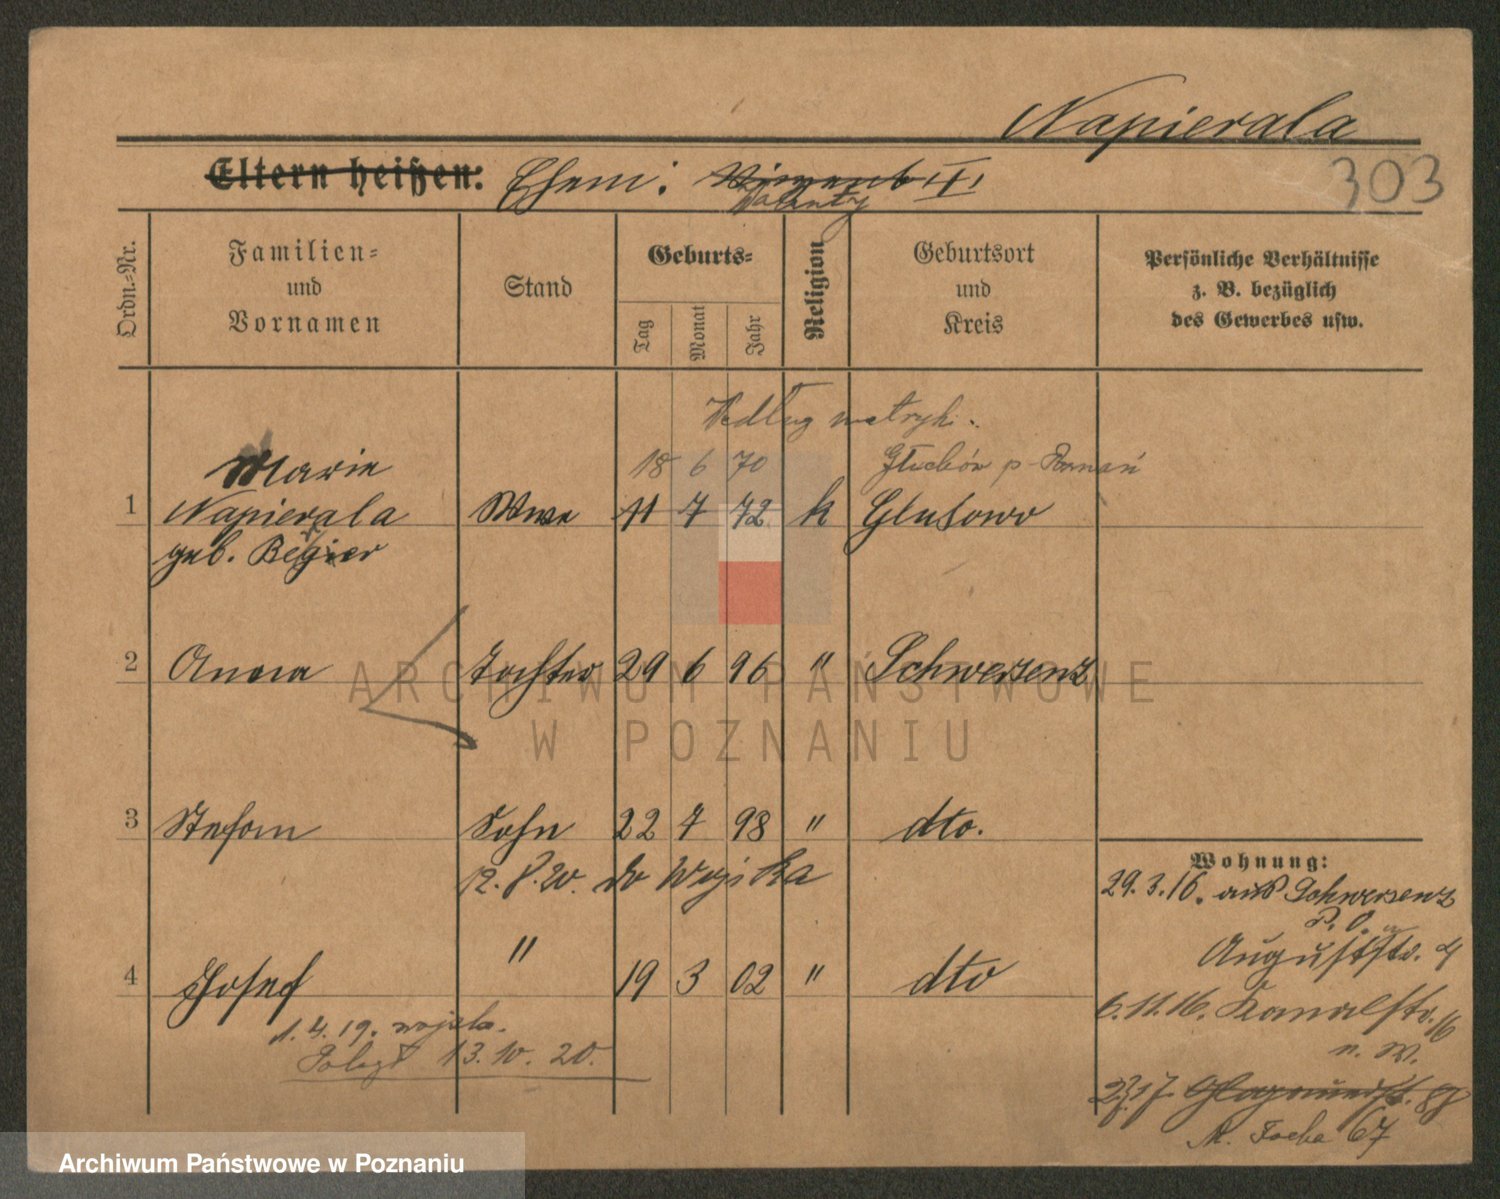 Napierala
303
Eltern heißen: Ehem: Vinzent †
Walenty
Ordn.-Nr.
Familien- und Vornamen
Stand
Geburts-
Tag
Monat
Jahr
Religion
Geburtsort und Kreis
Persönliche Verhältnisse
z. B. bezüglich
des Gewerbes usw.
Według metryki.
Marie 18 6 70 Głuchów p. Poznań
1 Napierala Wwe 11 7 72 k Glusowo
geb. Begier
2 Anna Tochter 29 6 96 " Schwersenz
3 Stefan Sohn 22 7 98 " dto.
12.8.20. do Wojska
Wohnung:
29.3.16. aus Schwersenz
P. O.
Auguststr. 4
4 Josef " 19 3 02 " dto
6.11.16. Kanalstr. 16
n. W.
1.4.19. wojsko.
Poległ 13.10.20.
17. Glogauerstr. 89
M. Focha 67
ARCHIWUM PAŃSTWOWE
W POZNANIU
Archiwum Państwowe w Poznaniu